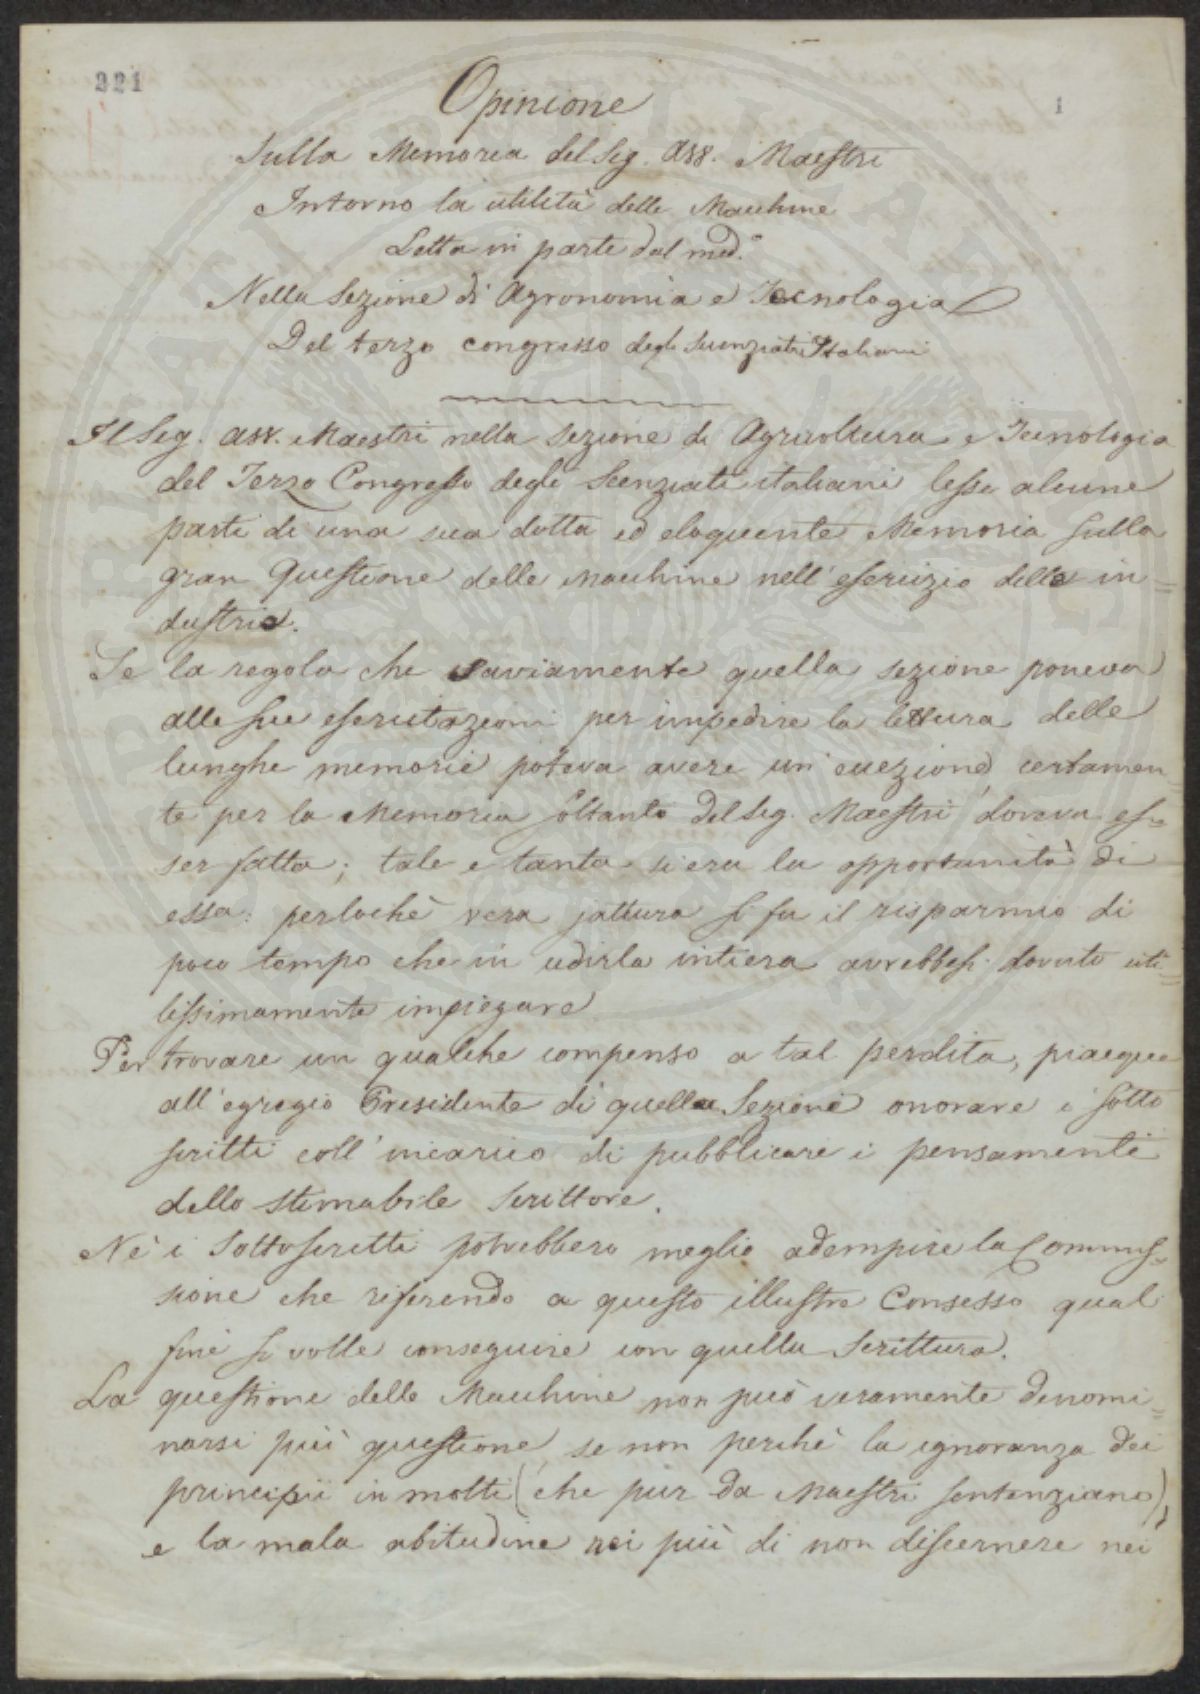 221
1
Opinione
Sulla Memoria del Sig. Ass. Maestri
Intorno la utilità delle Macchine
Letta in parte dal med.º
Nella Sezione di Agronomia e Tecnologia
Del terzo congresso degli Scienziati Italiani
Il Sig. Ass. Maestri nella Sezione di Agricoltura e Tecnologia
del Terzo Congresso degli Scenziati italiani lesse alcune
parti di una sua dotta ed eloquente Memoria sulla
gran Questione delle Macchine nell'esercizio della in=
dustria.
Se la regola che saviamente quella sezione poneva
alle sue esercitazioni per impedire la lettura delle
lunghe memorie poteva avere un'eccezione, certamen=
te per la Memoria soltanto del Sig. Maestri doveva es=
ser fatta; tale e tanta si era la opportunità di
essa: perlochè vera jattura si fu il risparmio di
poco tempo che in udirla intiera avrebbesi dovuto uti=
lissimamente impiegare
Per trovare un qualche compenso a tal perdita, piacque
all'egregio Presidente di quella Sezione onorare i sotto
scritti coll'incarico di pubblicare i pensamenti
dello stimabile Scrittore.
Nè i Sottoscritti potrebbero meglio adempire la Commis=
sione che riferendo a questo illustre Consesso qual
fine si volle conseguire con quella Scrittura.
La questione delle Macchine non può veramente denomi=
narsi più questione, se non perchè la ignoranza dei
principii in molti (che pur da Maestri sentenziano),
e la mala abitudine nei più di non discernere nei